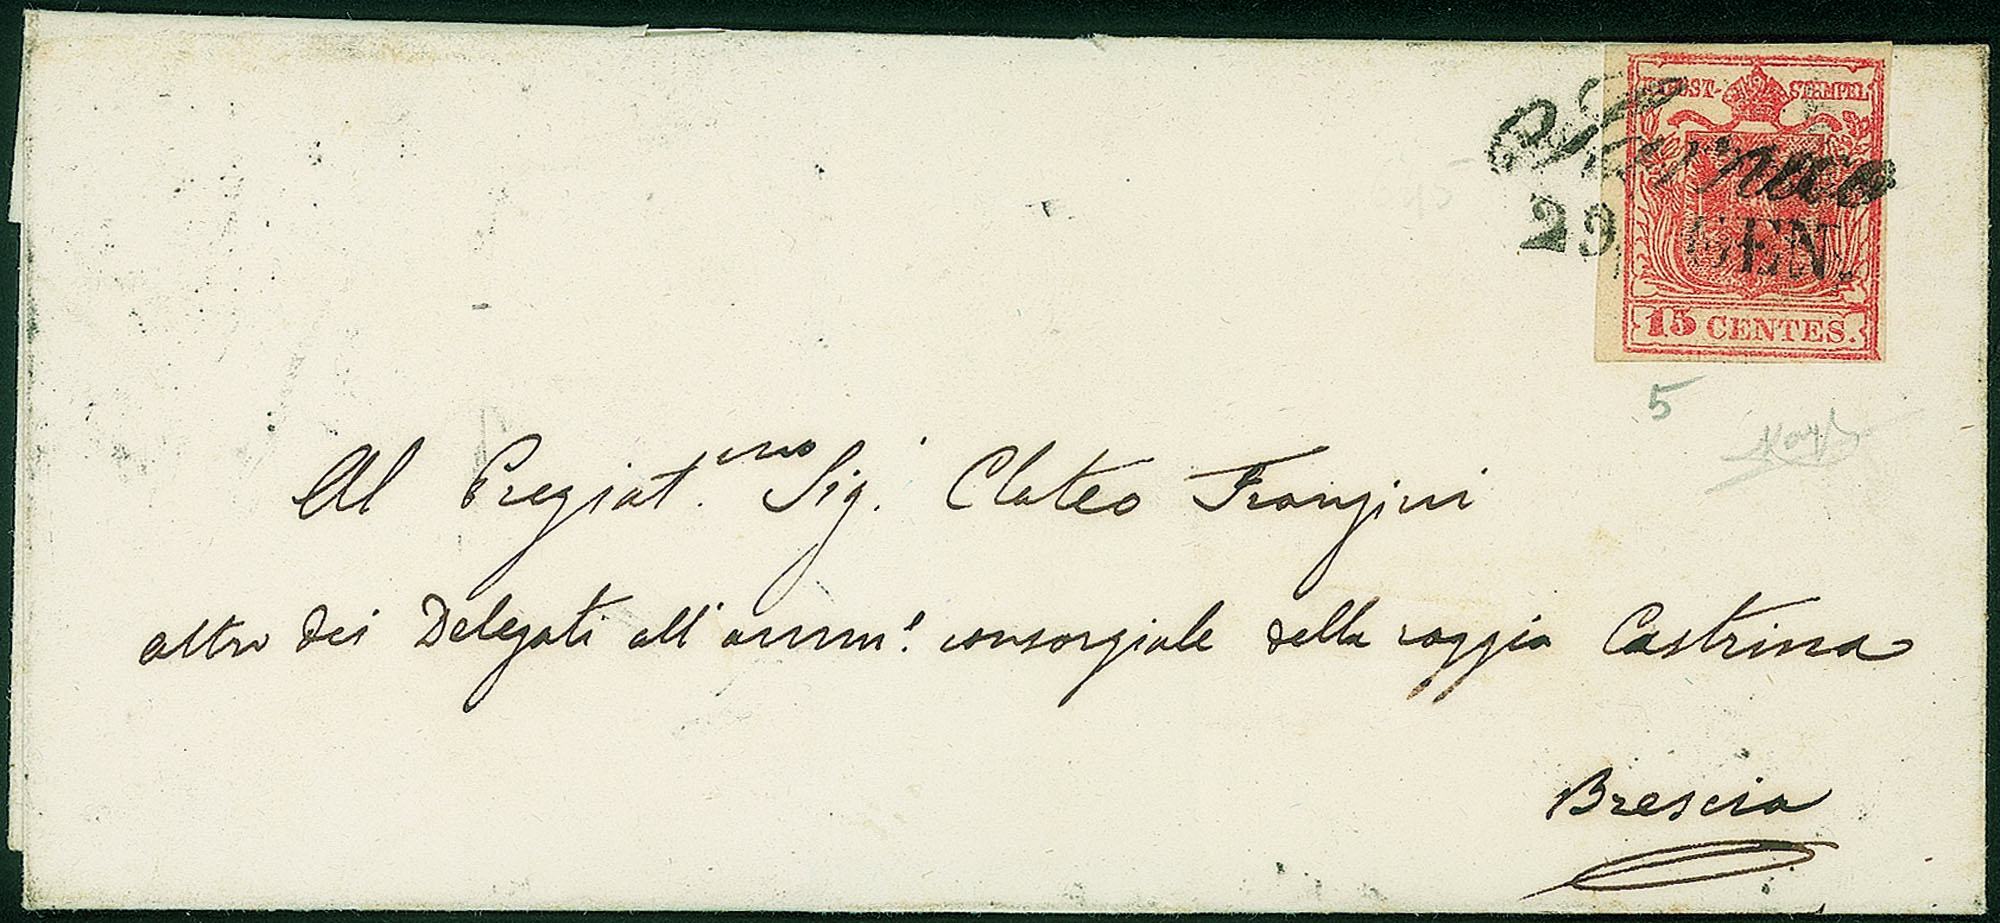 KPOST-STEMPEL
Sarnico
29 GEN.
15 CENTES.
5
Al Pregiat.mo Sig. Clateo Frangini
altro dei Delegati all' amm.e consorgiale della roggia Castrina
Brescia